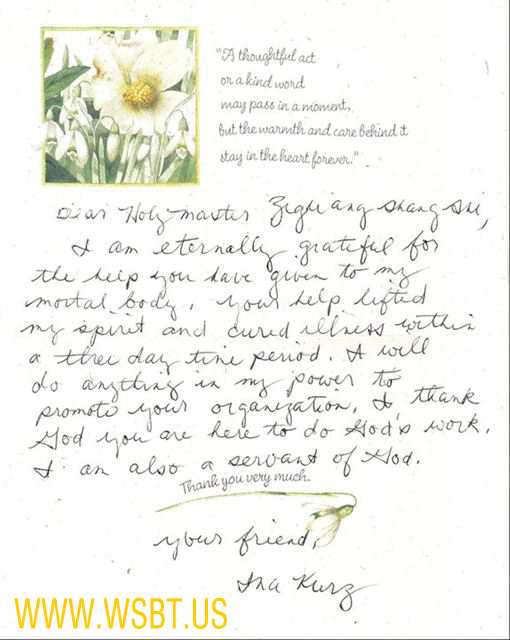 "A thoughtful act
or a kind word
may pass in a moment,
but the warmth and care behind it
stay in the heart forever."
Dear Holy master Zighi ang Shang Shi,
I am eternally grateful for
the help you have given to my
mortal body. Your help lifted
my spirit and cured illness within
a three day time period. I will
do anything in my power to
promote your organization. I thank
God you are here to do God's work.
I am also a servant of God.
Thank you very much.
your friend,
Ina Kurz
WWW.WSBT.US